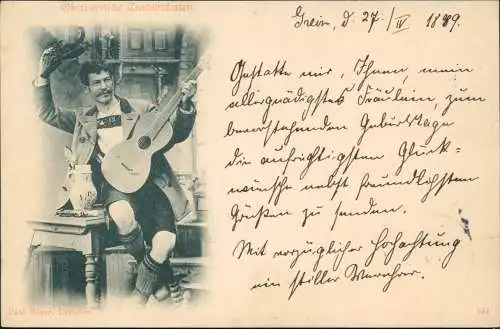 Oberbayrische Trachtenkarten
Grein, d. 27./IV 1899.
Gestatte mir, Ihnen, mein
allergnädigstes Fräulein, zum
bevorstehenden Geburtstage
die aufrichtigsten Glück-
wünsche nebst freundlichsten
Grüßen zu senden.
Mit vorzüglicher Hochachtung
ein stiller Verehrer.
Paul Bayer, Dresden.
144